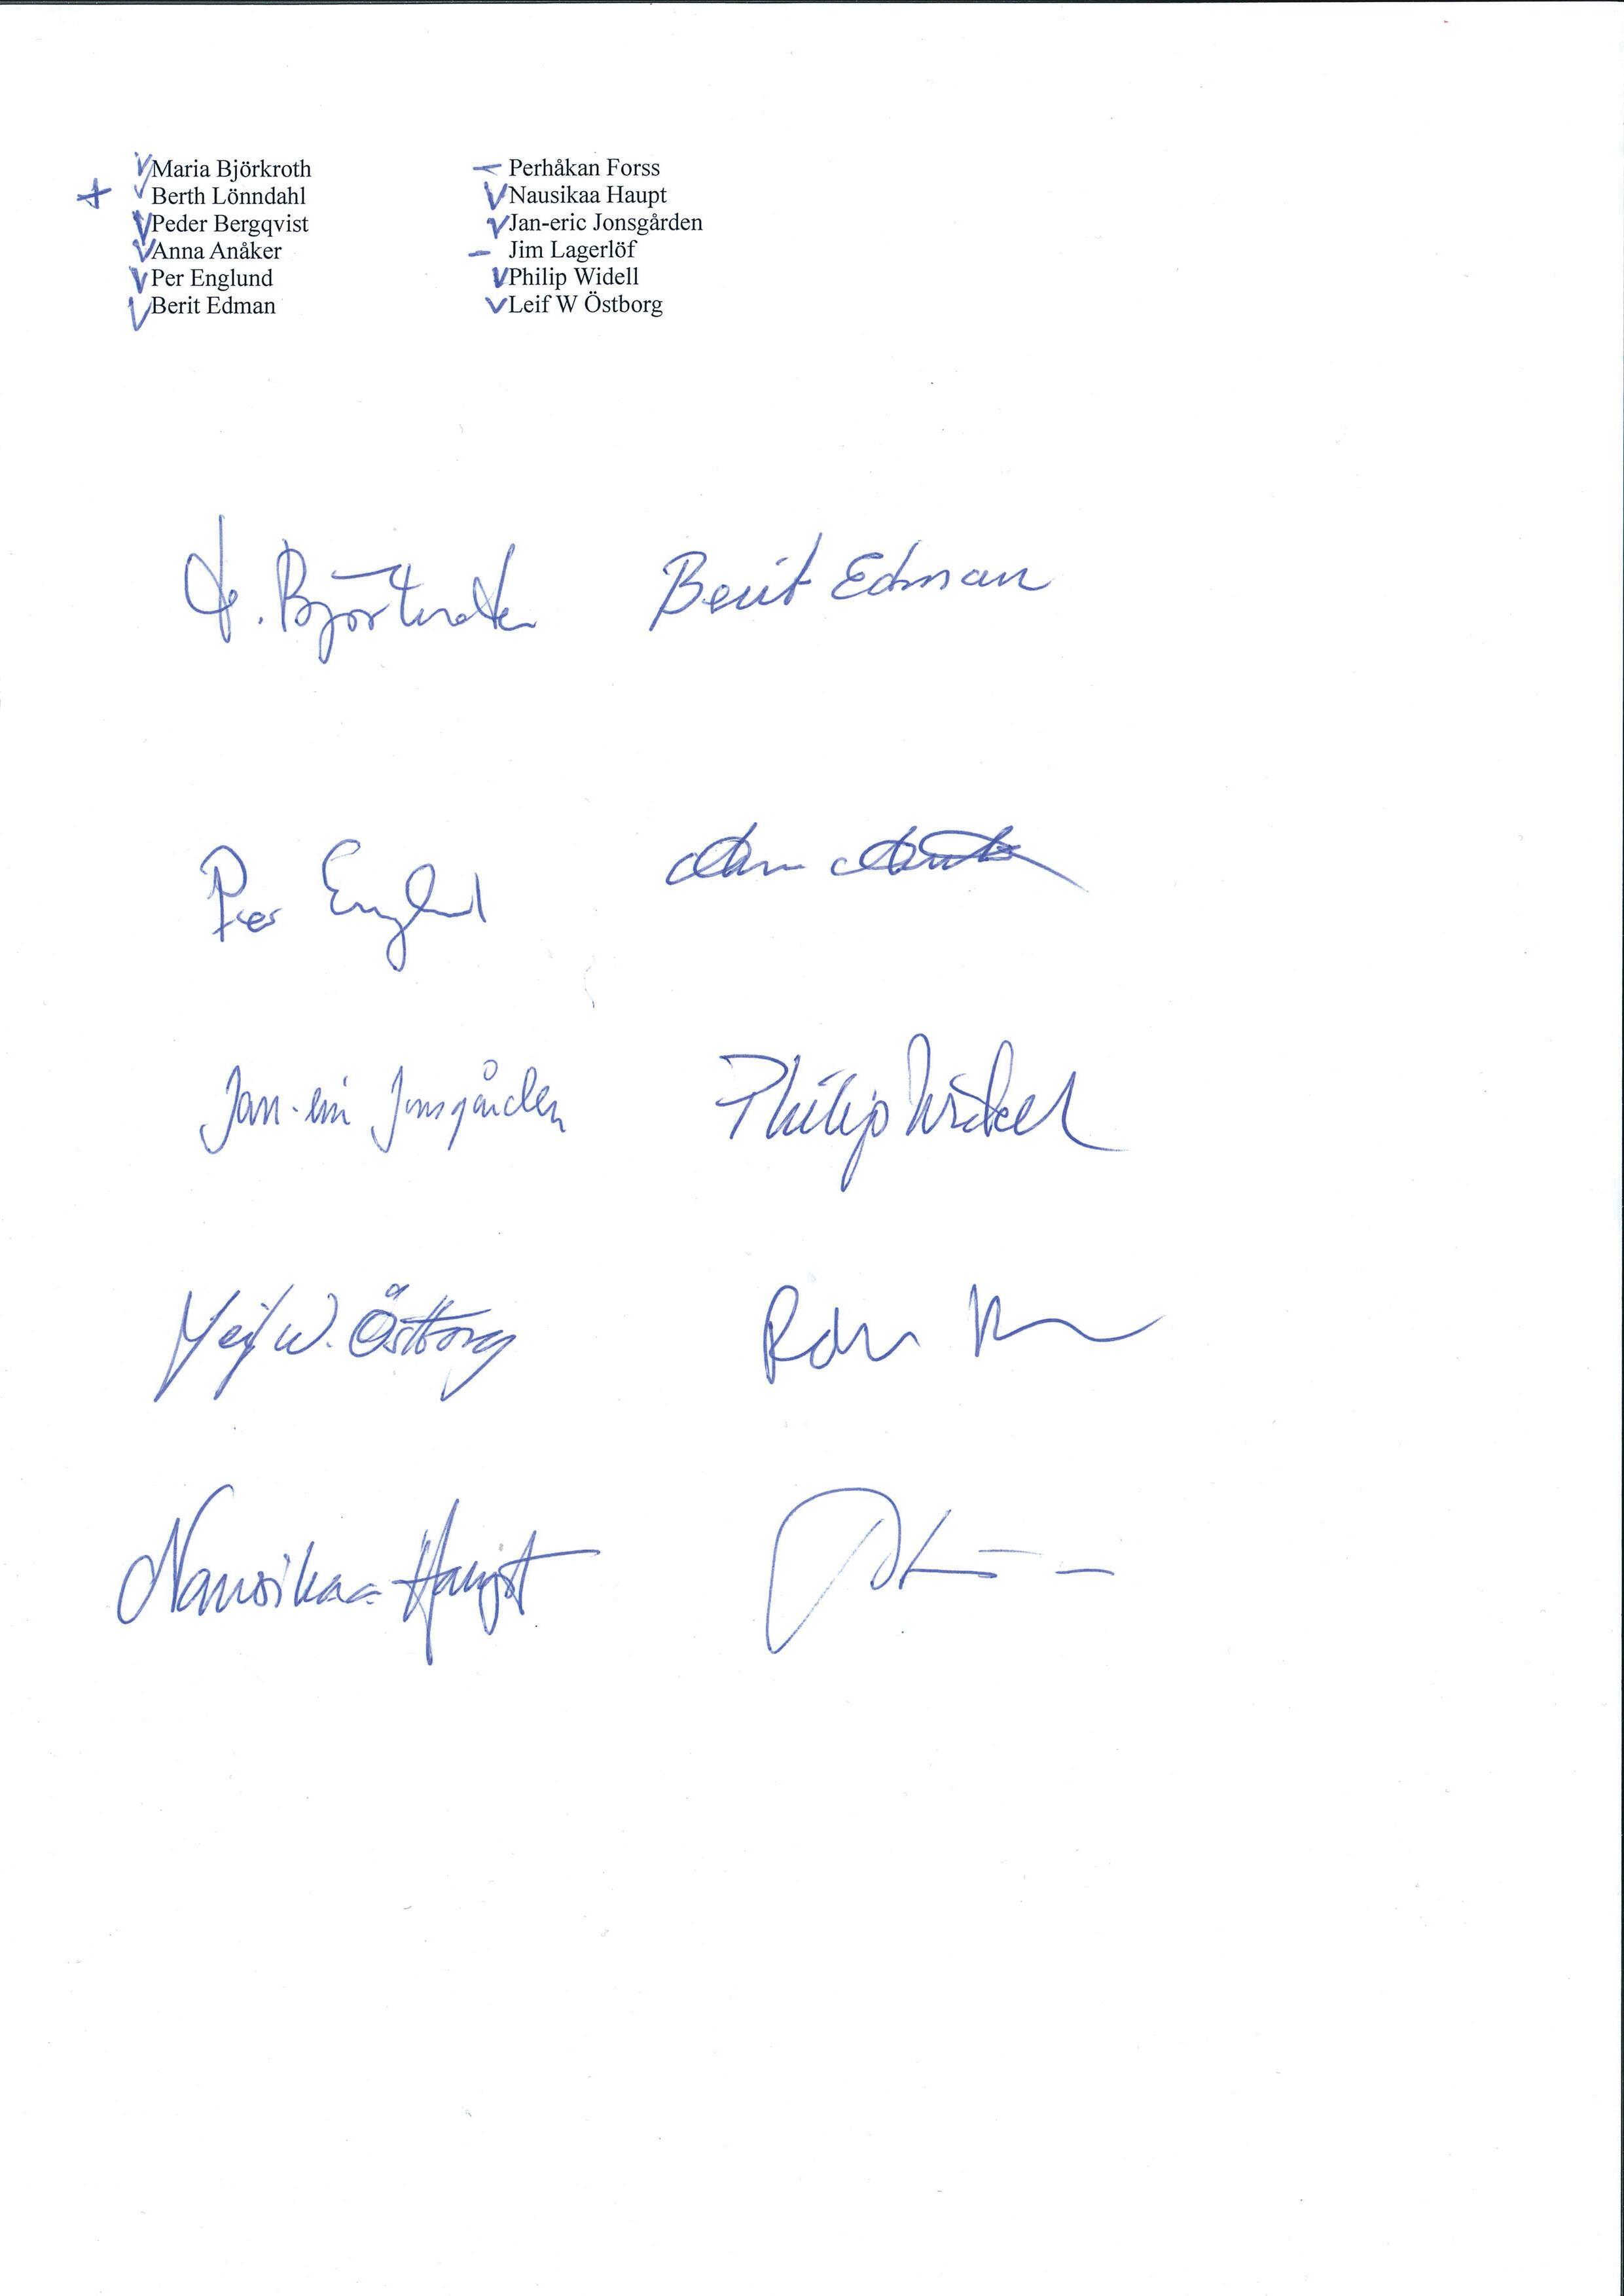 Maria Björkroth
Berth Lönndahl
Peder Bergqvist
Anna Anåker
Per Englund
Berit Edman
Perhåkan Forss
Nausikaa Haupt
Jan-eric Jonsgården
Jim Lagerlöf
Philip Widell
Leif W Östborg
Björkroth Berit Edman
Per Englund
Jan-eric Jonsgården Philip Widell
Leif W. Östborg
Nausikaa Haupt